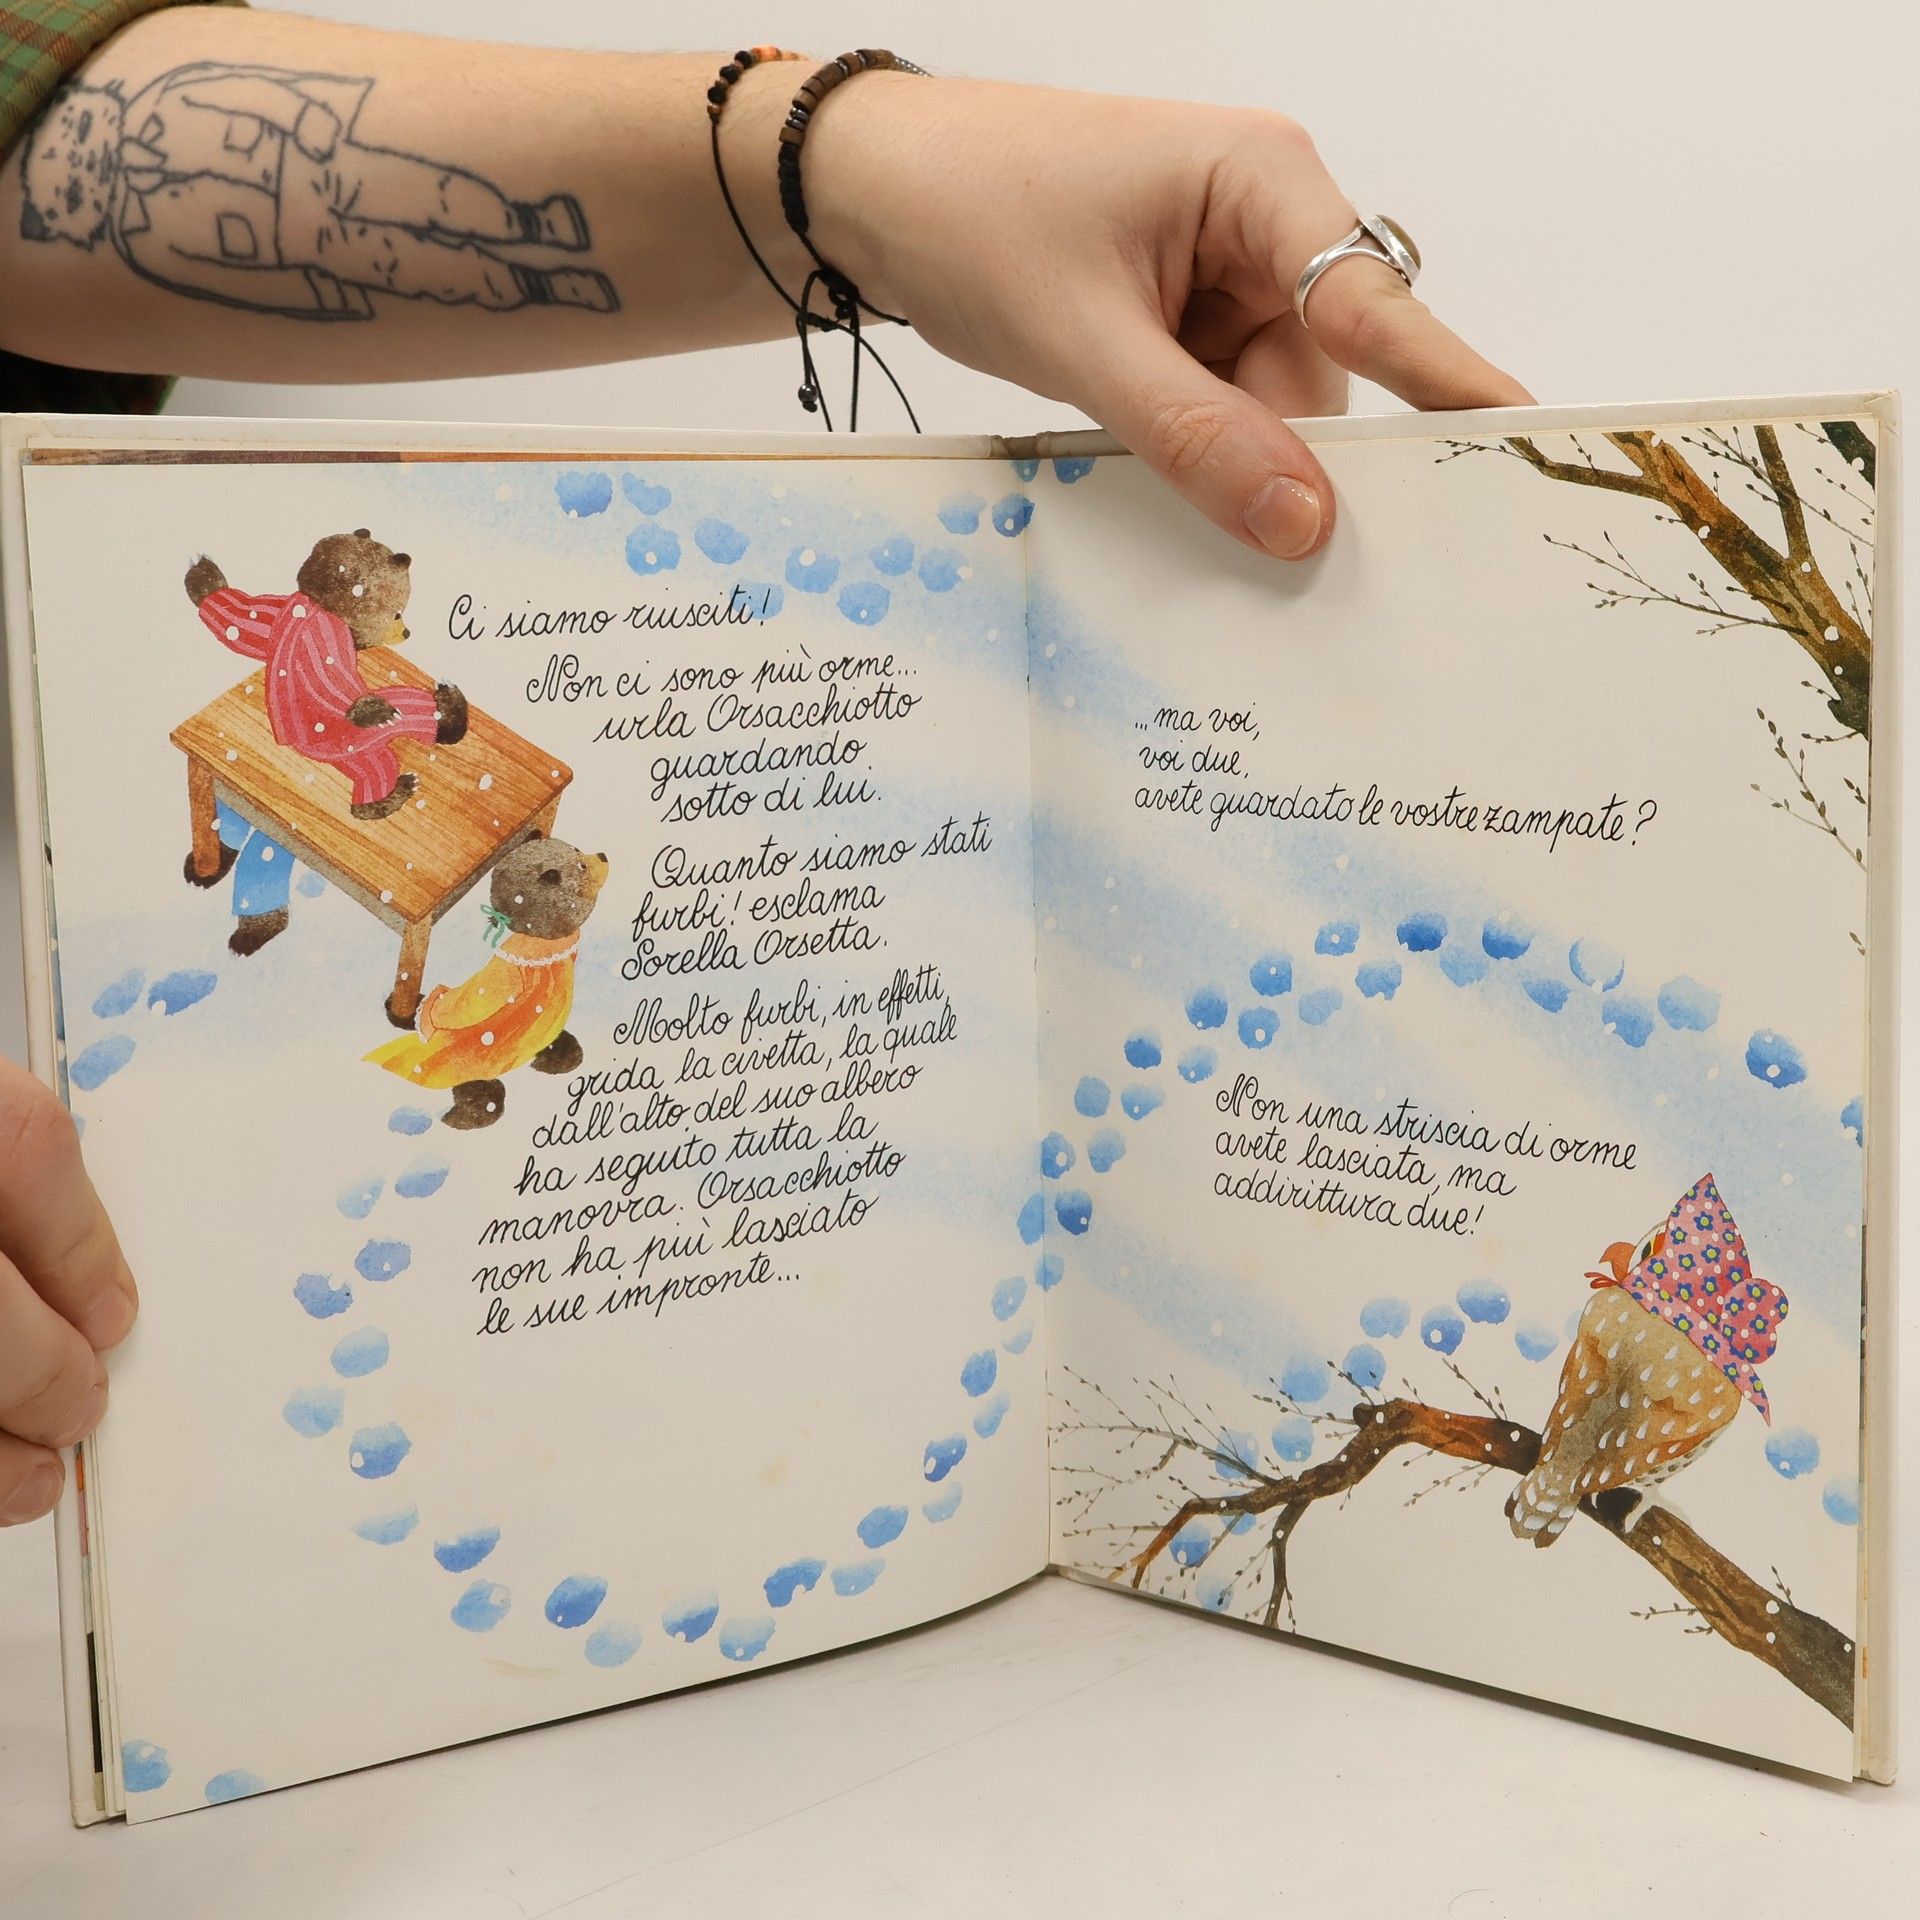 Ci siamo riusciti!
Non ci sono più orme...
urla Orsacchiotto
guardando
sotto di lui.
Quanto siamo stati
furbi! esclama
Sorella Orsetta.
Molto furbi, in effetti,
grida la civetta, la quale
dall'alto del suo albero
ha seguito tutta la
manovra. Orsacchiotto
non ha più lasciato
le sue impronte...
...ma voi,
voi due,
avete guardato le vostre zampate?
Non una striscia di orme
avete lasciata, ma
addirittura due!